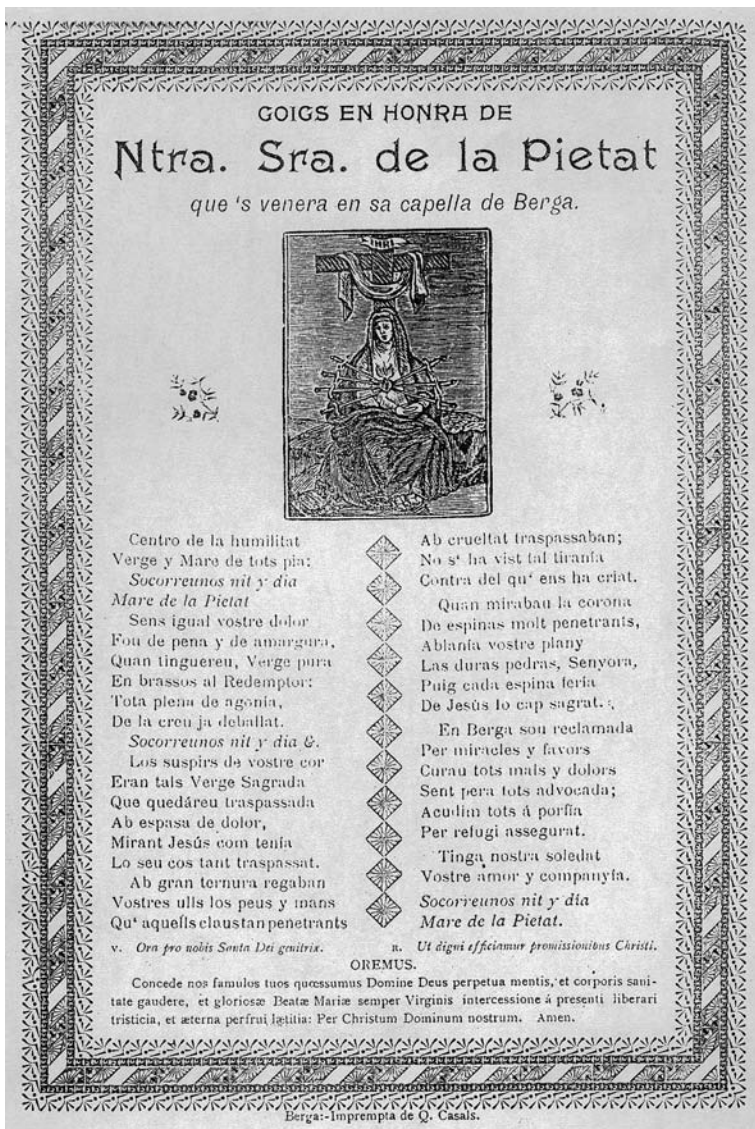 GOIGS EN HONRA DE
Ntra. Sra. de la Pietat
que 's venera en sa capella de Berga.
INRI
Centro de la humilitat
Verge y Mare de tots pia:
Socorreunos nit y dia
Mare de la Pietat
Sens igual vostre dolor
Fou de pena y de amargura,
Quan tinguereu, Verge pura
En brassos al Redemptor:
Tota plena de agonía,
De la creu ja deballat.
Socorreunos nit y dia &.
Los suspirs de vostre cor
Eran tals Verge Sagrada
Que quedáreu traspassada
Ab espasa de dolor,
Mirant Jesús com tenía
Lo seu cos tant traspassat.
Ab gran ternura regaban
Vostres ulls los peus y mans
Qu' aquells claus tan penetrants
Ab crueltat traspassaban;
No s' ha vist tal tiranía
Contra del qu' ens ha criat.
Quan mirabau la corona
De espinas molt penetrants,
Ablanía vostre plany
Las duras pedras, Senyora,
Puig cada espina fería
De Jesús lo cap sagrat.
En Berga sou reclamada
Per miracles y favors
Curau tots mals y dolors
Sent pera tots advocada;
Acudim tots á porfía
Per refugi assegurat.
Tinga nostra soledat
Vostre amor y companyía.
Socorreunos nit y día
Mare de la Pietat.
V. Ora pro nobis Santa Dei genitrix.
R. Ut digni efficiamur promissionibus Christi.
OREMUS.
Concede nos famulos tuos quœssumus Domine Deus perpetua mentis, et corporis sani-
tate gaudere, et gloriosæ Beatæ Mariæ semper Virginis intercessione á presenti liberari
tristicia, et æterna perfrui lætitia: Per Christum Dominum nostrum. Amen.
Berga:-Imprempta de Q. Casals.